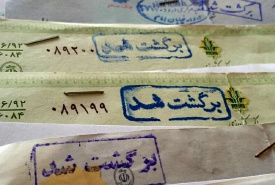 ۶/۹۲
۰۸۳
۰۸۹۲۰۰
برگشت شد
۶/۹۲
۰۸۴
۰۸۹۱۹۹
برگشت شد
برگشت شد